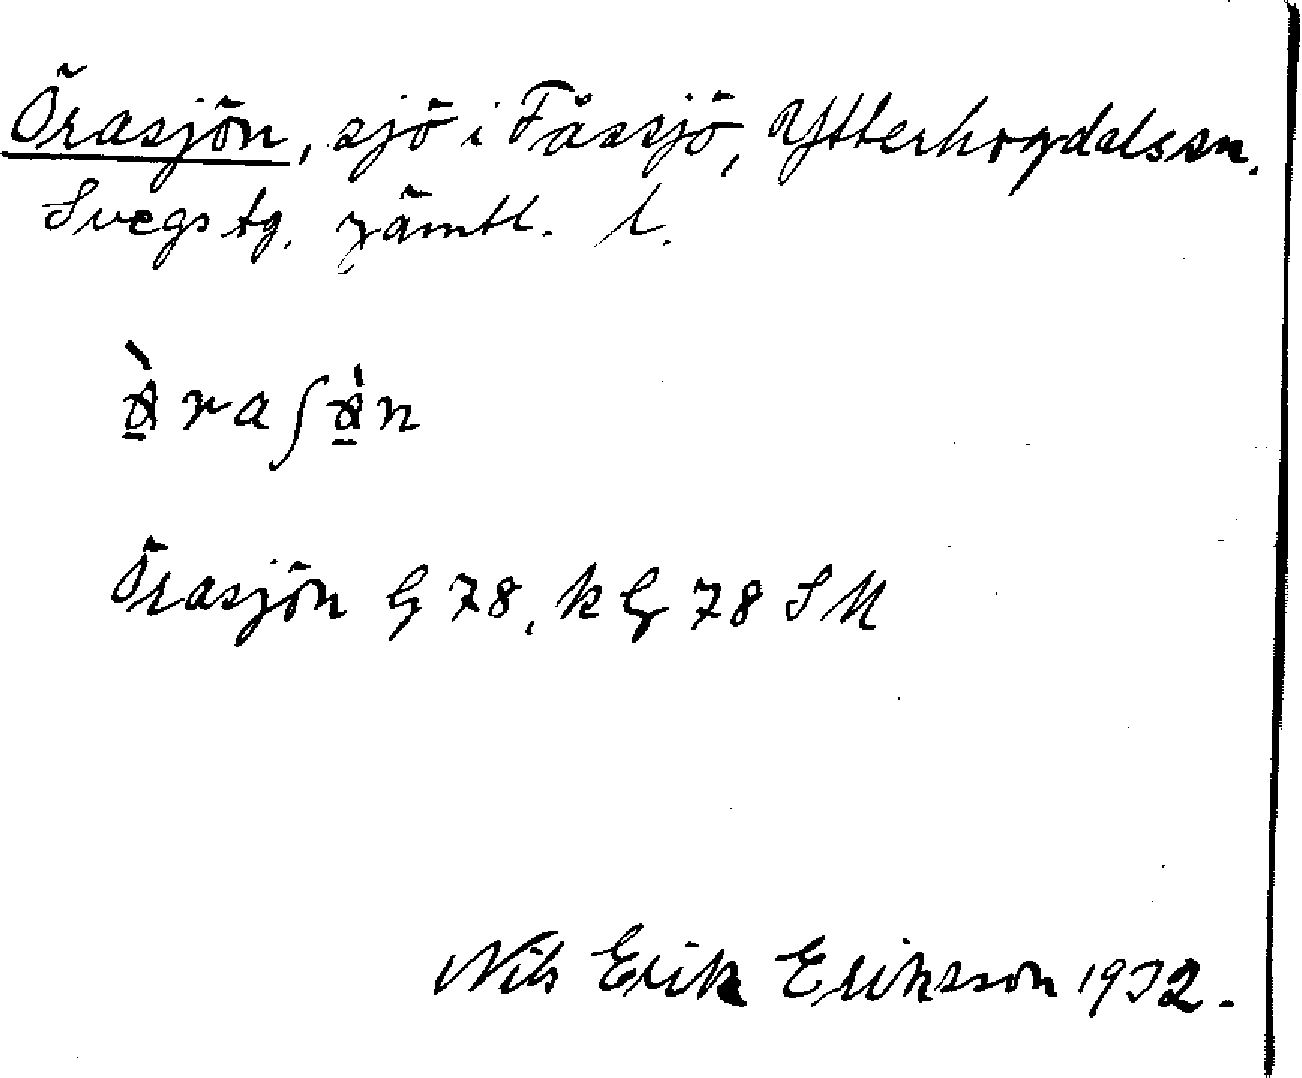 Örasjön, sjö i Fåssjö, Ytterhogdalssn.
Svegs tg. Jämtl. l.
Örasjön G 78, k G 78 SK
Nils Erik Eriksson 1932.